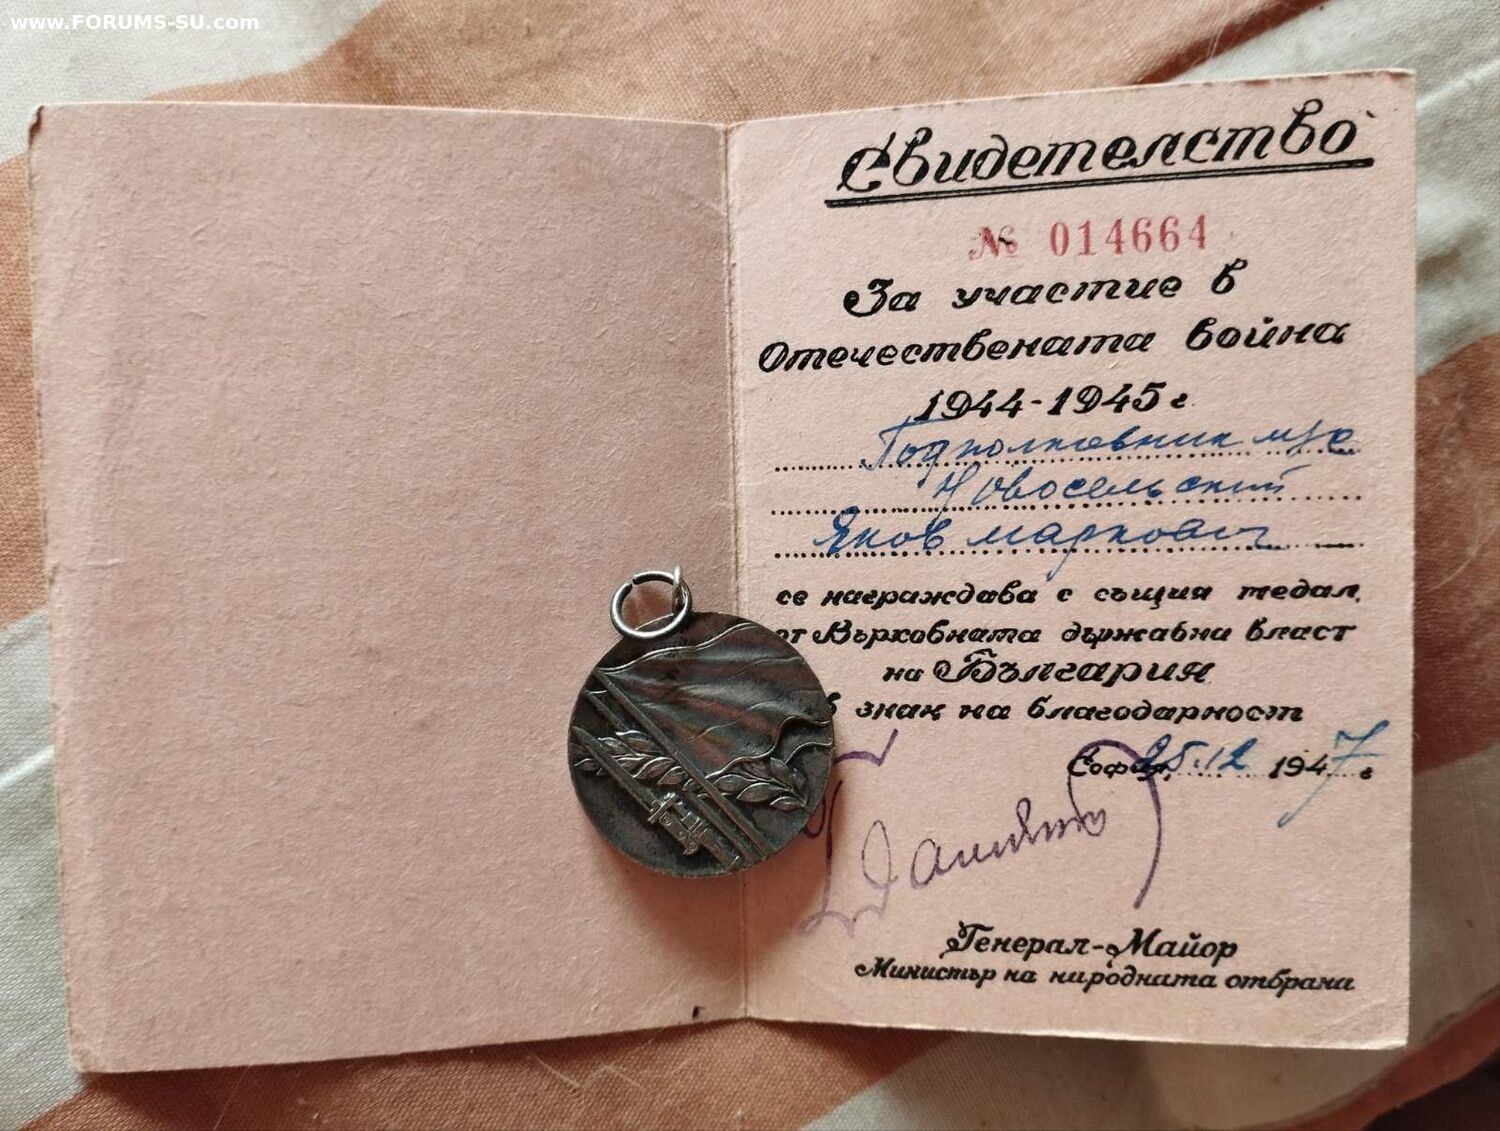 www.FORUMS-SU.com
Свидетелство
№ 014664
За участие в
Отечествената война
1944-1945 г.
Подполковник м/с
Новосельский
Яков Маркович
се награждава с същия медал,
от Върховната държавна власт
на България
в знак на благодарност
София, 25.12 1947 г.
Генерал-Майор
Министър на народната отбрана